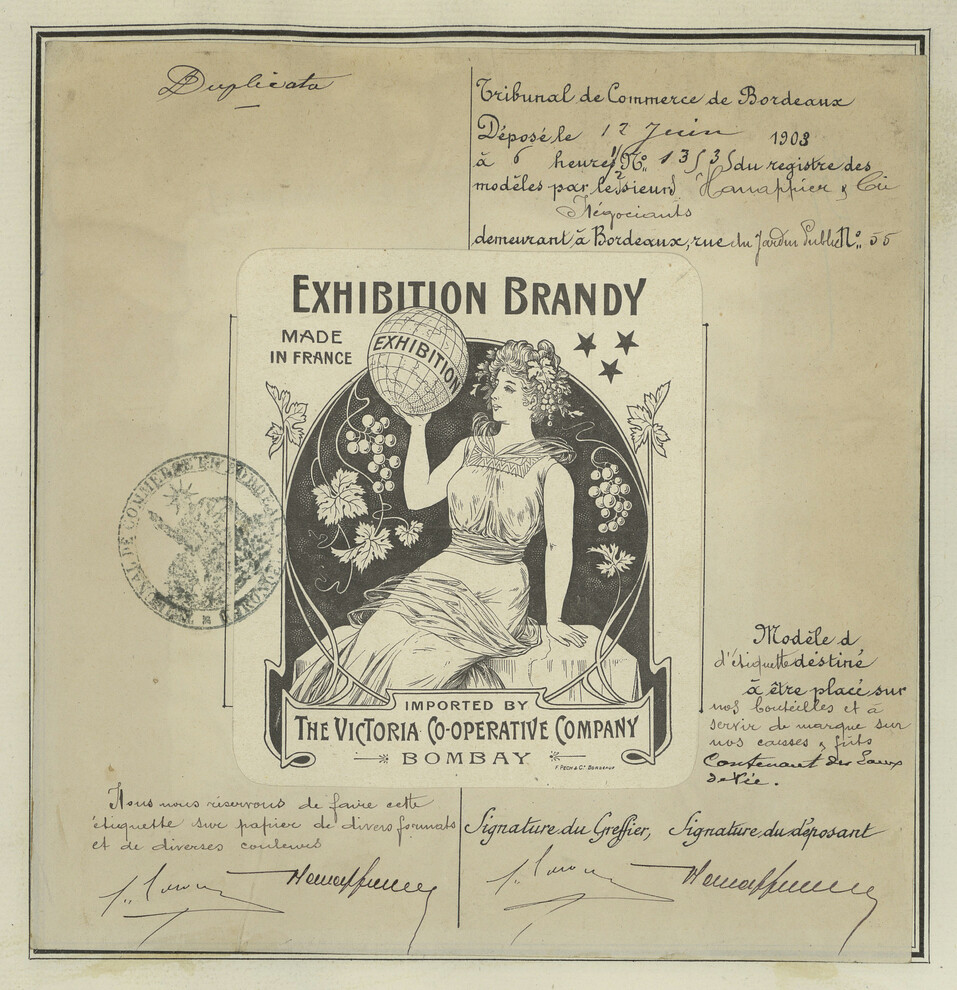 Duplicata
Tribunal de Commerce de Bordeaux
Déposé le 12 Juin 1903
à 6 heures 1/2 No. 13535 du registre des
modèles par les sieurs Hanappier & Cie
Négociants
demeurant à Bordeaux, rue du Jardin Public No. 55
EXHIBITION BRANDY
MADE
IN FRANCE
EXHIBITION
TRIBUNAL DE COMMERCE
Modèle d
d'étiquette déstiné
à être placé sur
nos bouteilles et à
servir de marque sur
nos caisses & fûts
Contenant des Eaux
de Vie.
IMPORTED BY
THE VICTORIA CO-OPERATIVE COMPANY
BOMBAY
F. PECH & Cie BORDEAUX
Nous nous réservons de faire cette
étiquette sur papier de divers formats
et de diverses couleurs
Signature du Greffier, Signature du déposant